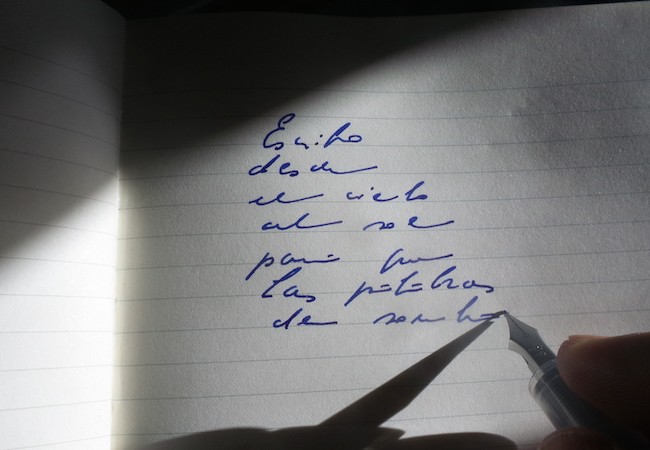 Escribo
desde
el cielo
al sol
para que
las palabras
den sombra